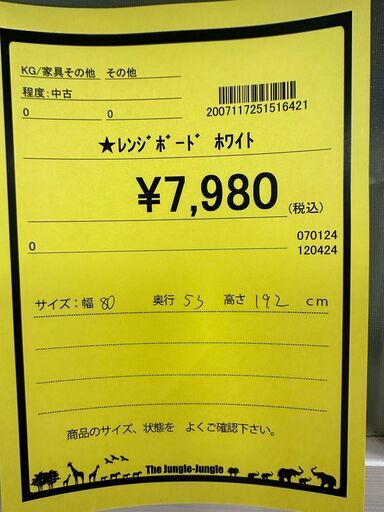 KG/家具その他 その他
程度:中古
0 0
2007117251516421
★ﾚﾝｼﾞﾎﾞｰﾄﾞ ﾎﾜｲﾄ
¥7,980(税込)
0
070124
120424
サイズ:幅 80 奥行 53 高さ 192 cm
商品のサイズ、状態を よくご確認下さい。
The Jungle-Jungle